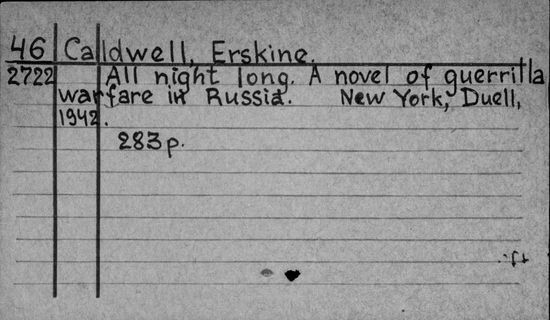 46 Caldwell, Erskine.
2722 All night long. A novel of guerrilla
warfare in Russia. New York, Duell,
1942.
283 p.